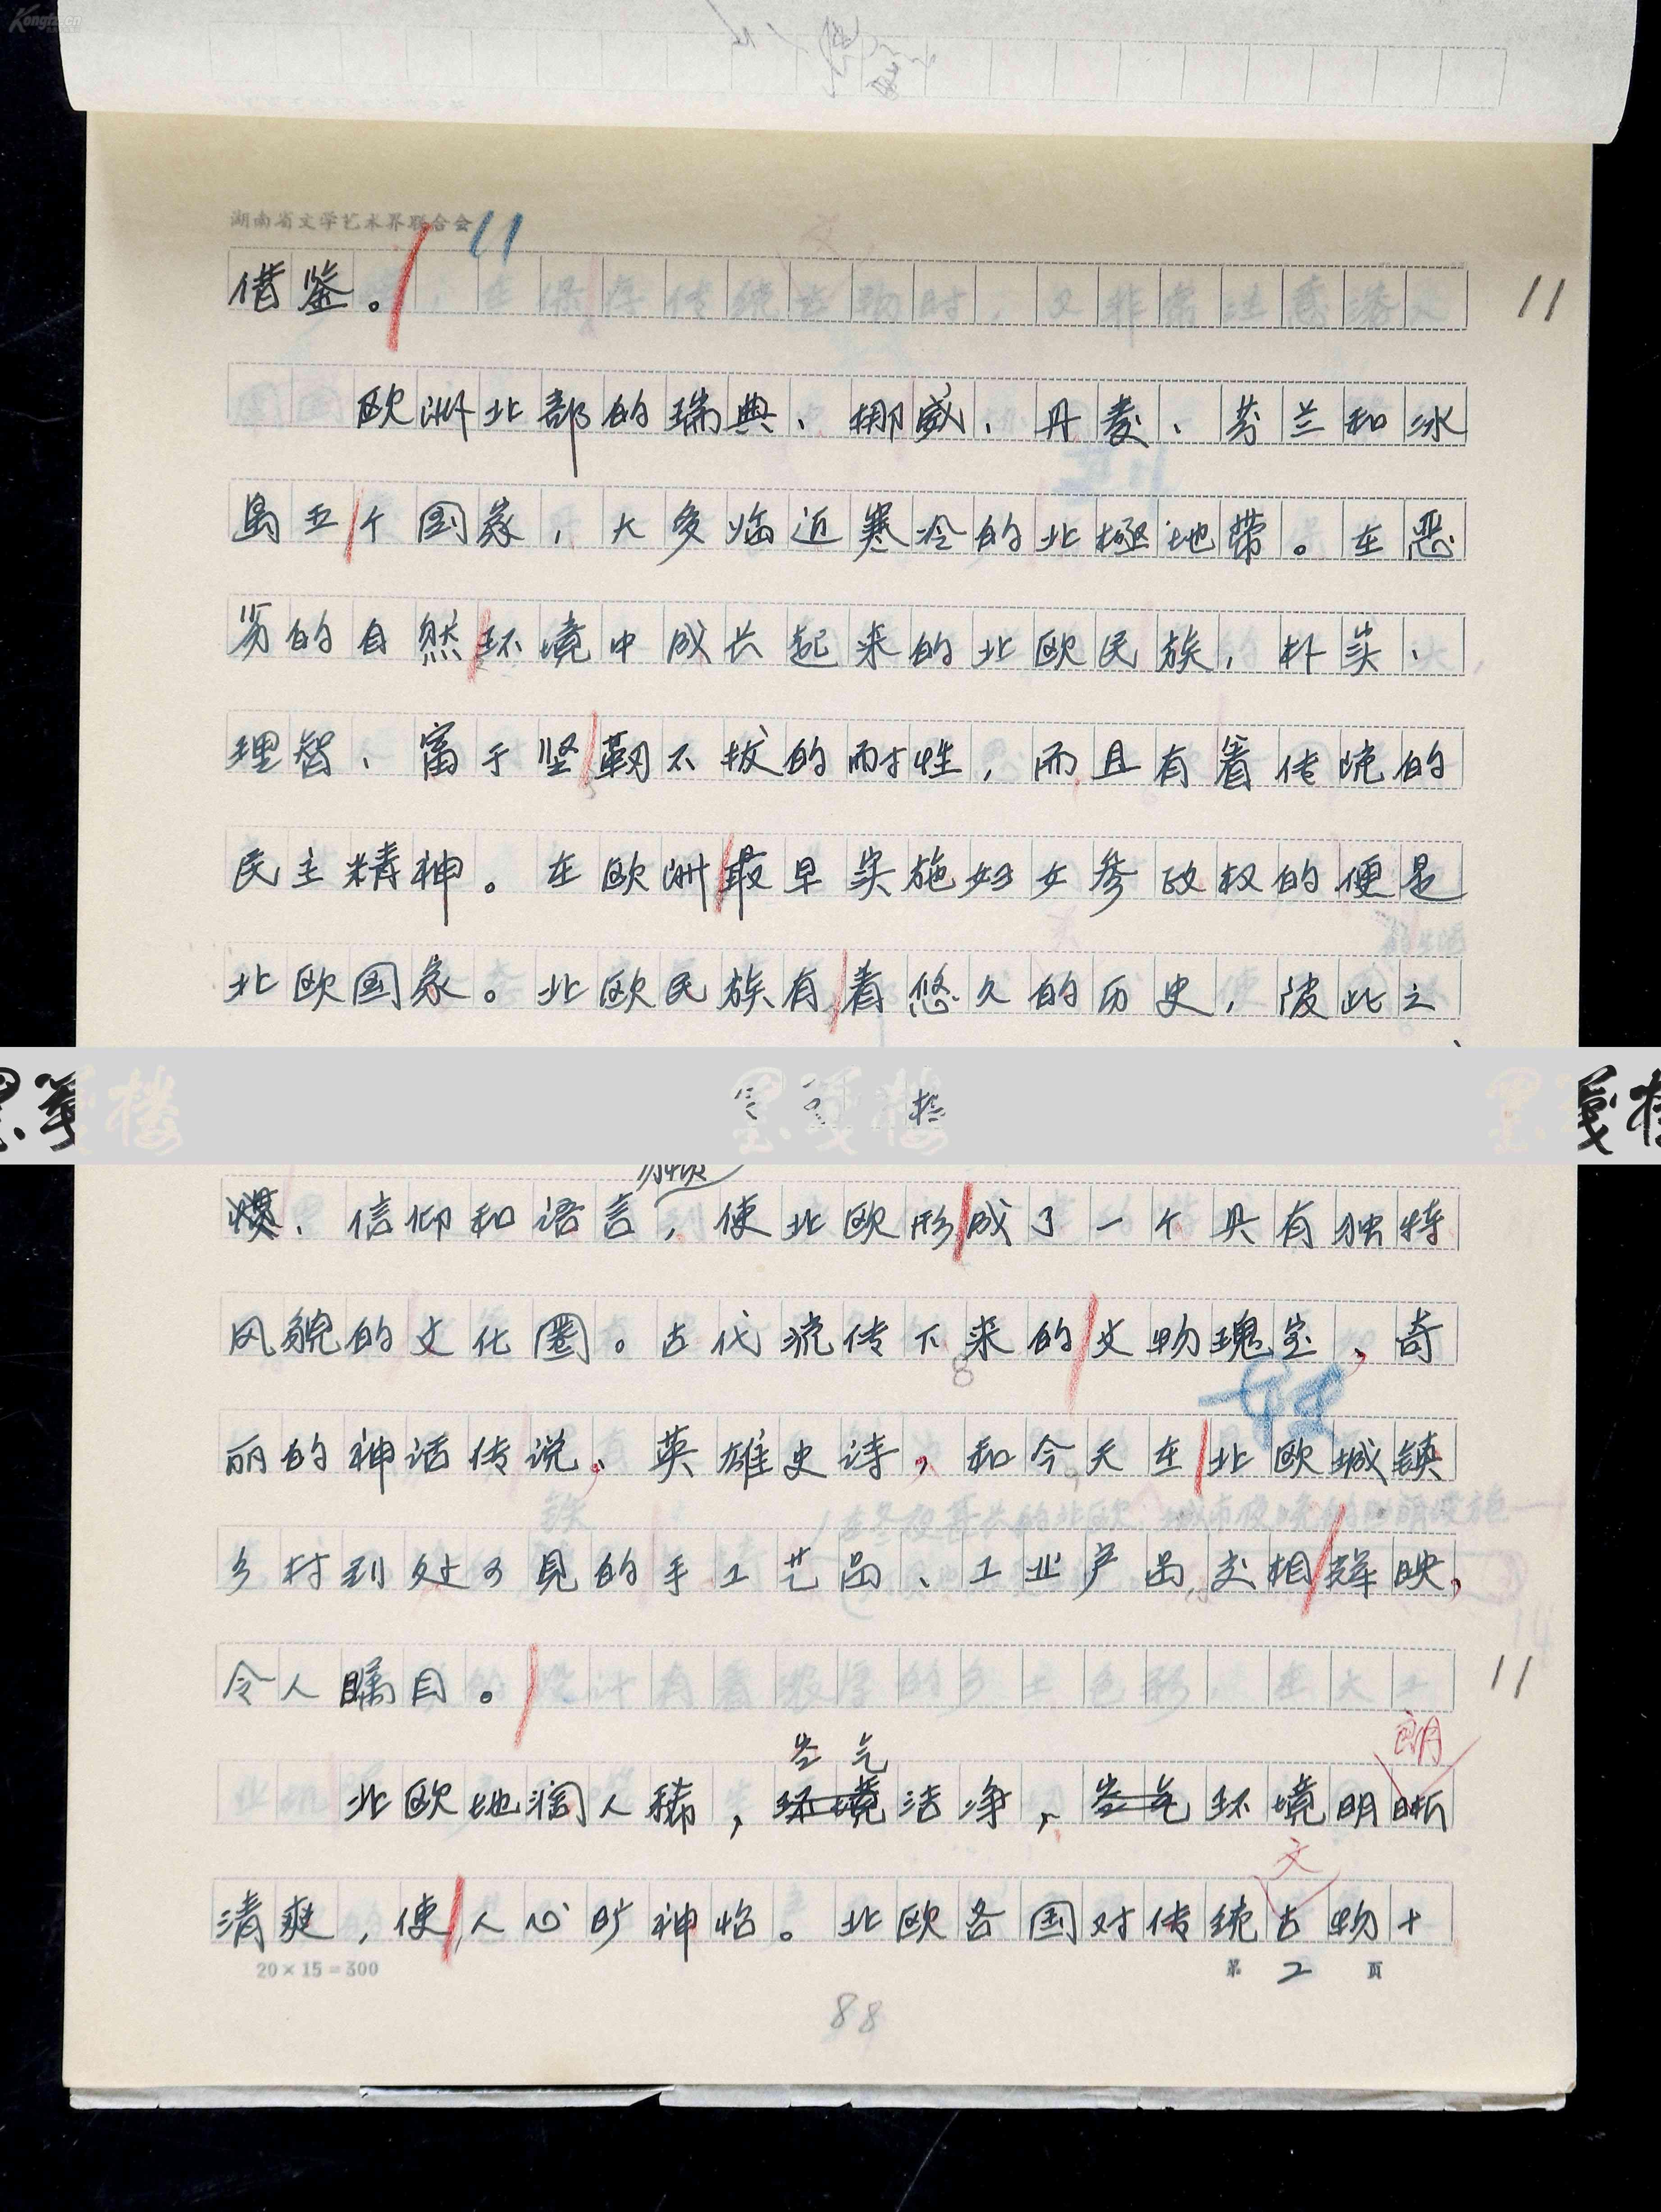 Kongfz.cn
湖南省文学艺术界联合会
11
借鉴。
11
欧洲北部的瑞典、挪威、丹麦、芬兰和冰
岛五个国家，大多临近寒冷的北極地带。在恶
劣的自然环境中成长起来的北欧民族，朴实、
理智、富于坚韧不拔的耐性，而且有着传统的
民主精神。在欧洲最早实施妇女参政权的便是
北欧国家。北欧民族有着悠久的历史，彼此之
墨笺楼
惯、信仰和语言，使北欧形成了一个具有独特
风貌的文化圈。古代流传下来的文物瑰宝、奇
丽的神话传说、英雄史诗，和今天在北欧城镇
乡村到处可見的手工艺品、工业产品，交相辉映，
令人瞩目。
11
朗
空气
北欧地阔人稀，环境洁净，空气环境明晰
文
清爽，使人心旷神怡。北欧各国对传统古物十
20×15=300
第 2 页
88